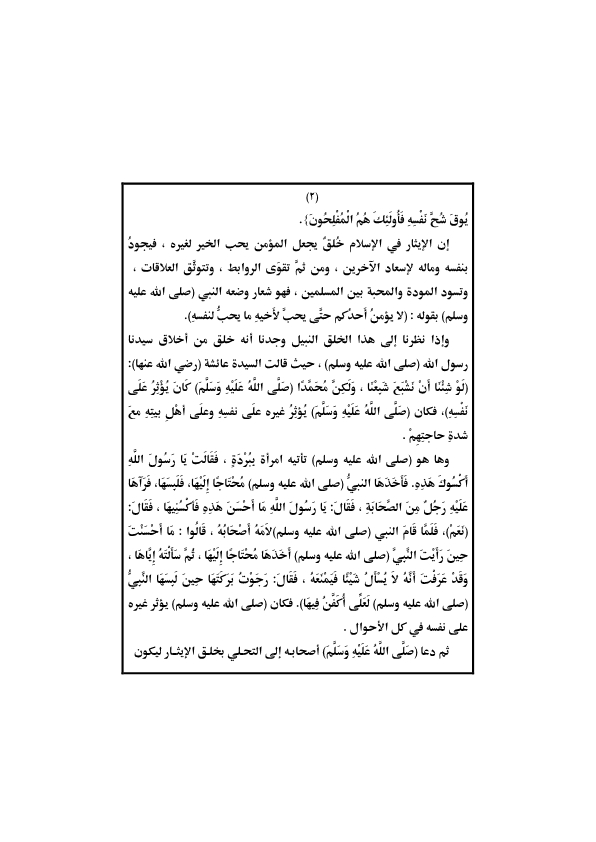 (٢)
يُوقَ شُحَّ نَفْسِهِ فَأُولَئِكَ هُمُ الْمُفْلِحُونَ} .
إن الإيثار في الإسلام خُلقٌ يجعل المؤمن يحب الخير لغيره ، فيجودُ
بنفسه وماله لإسعاد الآخرين ، ومن ثمَّ تقوَى الروابط ، وتتوثَّق العلاقات ،
وتسود المودة والمحبة بين المسلمين ، فهو شعار وضعه النبي (صلى الله عليه
وسلم) بقوله : (لا يؤمنُ أحدُكم حتَّى يحبَّ لأَخيهِ ما يحبُّ لنفسهِ).
وإذا نظرنا إلى هذا الخلق النبيل وجدنا أنه خلق من أخلاق سيدنا
رسول الله (صلى الله عليه وسلم) ، حيث قالت السيدة عائشة (رضي الله عنها):
(لَوْ شِئْنَا أَنْ نَشْبَعَ شَبِعْنَا ، وَلَكِنَّ مُحَمَّدًا (صَلَّى اللَّهُ عَلَيْهِ وَسَلَّمَ) كَانَ يُؤْثِرُ عَلَى
نَفْسِهِ)، فكان (صَلَّى اللَّهُ عَلَيْهِ وَسَلَّمَ) يُؤثِرُ غيره علَى نفسهِ وعلَى أهْلِ بيتِهِ معَ
شدةِ حاجتِهِمْ .
وها هو (صلى الله عليه وسلم) تأتيه امرأة بِبُرْدَةٍ ، فَقَالَتْ يَا رَسُولَ اللَّهِ
أَكْسُوكَ هَذِهِ. فَأَخَذَهَا النبيُّ (صلى الله عليه وسلم) مُحْتَاجًا إِلَيْهَا، فَلَبِسَهَا، فَرَآهَا
عَلَيْهِ رَجُلٌ مِنَ الصَّحَابَةِ ، فَقَالَ: يَا رَسُولَ اللَّهِ مَا أَحْسَنَ هَذِهِ فَاكْسُنِيهَا ، فَقَالَ:
(نَعَمْ)، فَلَمَّا قَامَ النبي (صلى الله عليه وسلم)لاَمَهُ أَصْحَابُهُ ، قَالُوا : مَا أَحْسَنْتَ
حِينَ رَأَيْتَ النَّبِيَّ (صلى الله عليه وسلم) أَخَذَهَا مُحْتَاجًا إِلَيْهَا ، ثُمَّ سَأَلْتَهُ إِيَّاهَا ،
وَقَدْ عَرَفْتَ أَنَّهُ لاَ يُسْأَلُ شَيْئًا فَيَمْنَعَهُ ، فَقَالَ: رَجَوْتُ بَرَكَتَهَا حِينَ لَبِسَهَا النَّبِيُّ
(صلى الله عليه وسلم) لَعَلِّى أُكَفَّنُ فِيهَا). فكان (صلى الله عليه وسلم) يؤثر غيره
على نفسه في كل الأحوال .
ثم دعا (صَلَّى اللَّهُ عَلَيْهِ وَسَلَّمَ) أصحابـه إلى التحـلي بخلـق الإيثـار ليكون